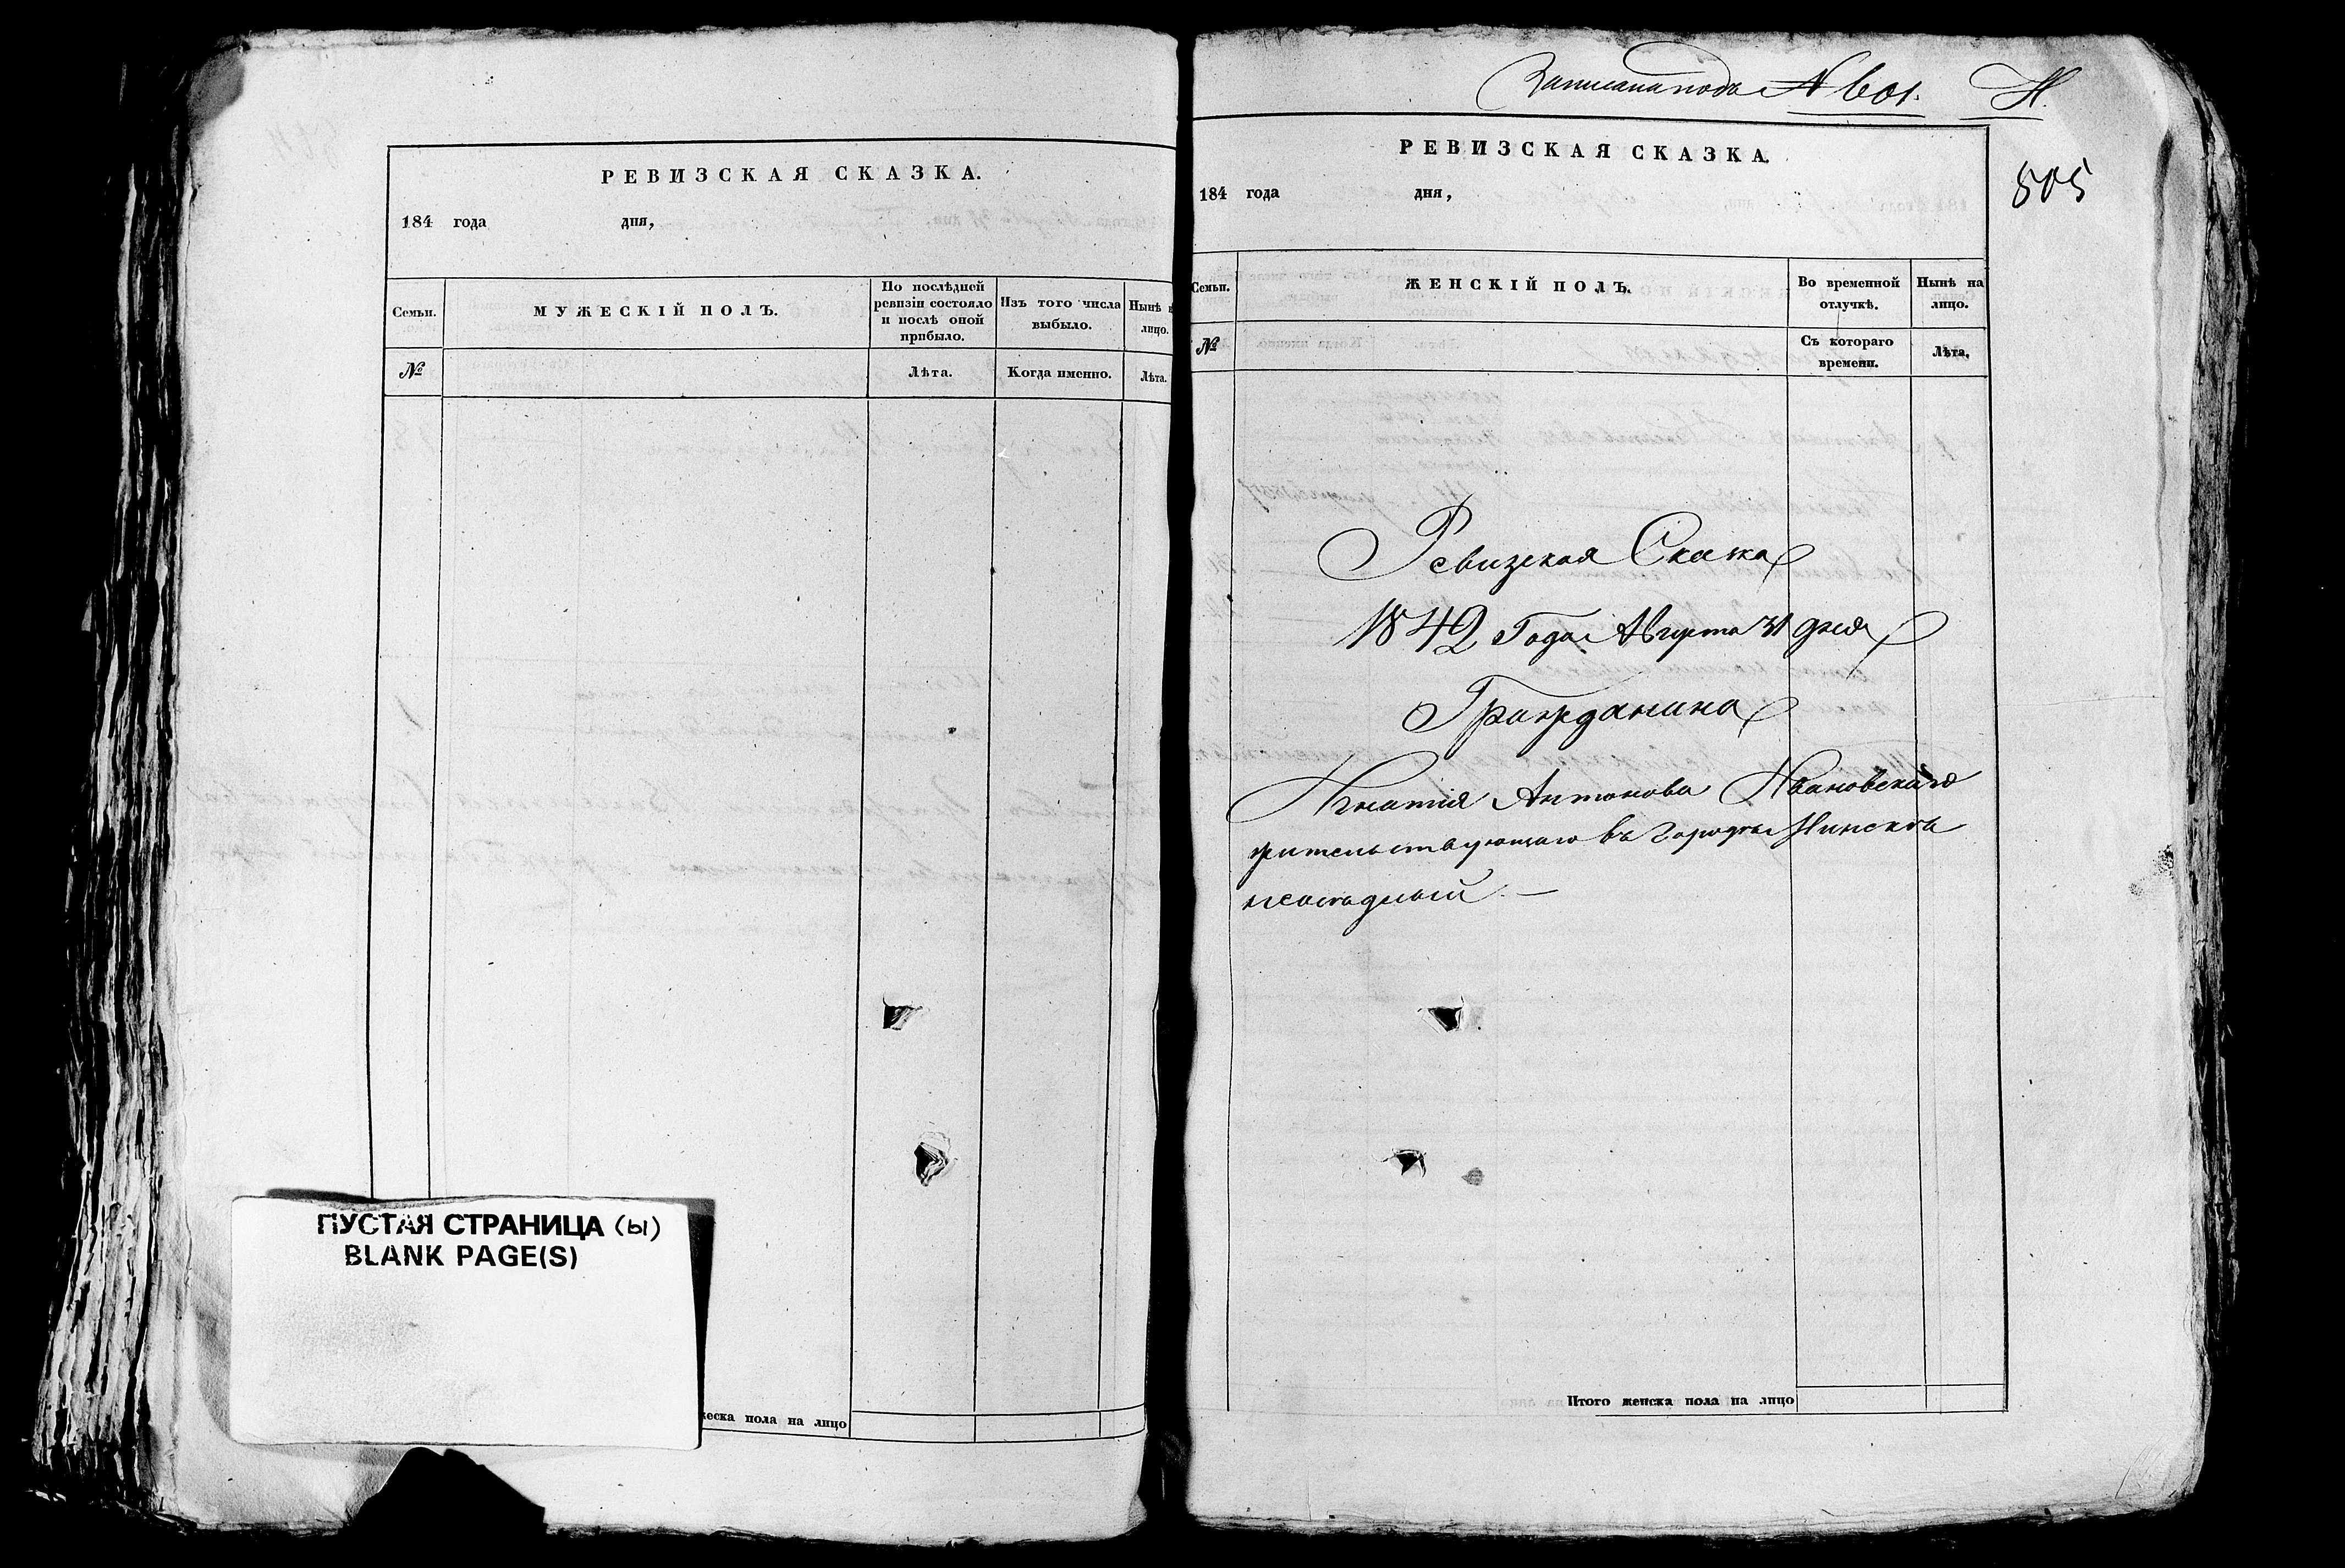 РЕВИЗСКАЯ СКАЗКА.
184 года дня,
Семьи. МУЖЕСКІЙ ПОЛЪ. По послѣдней ревизіи состояло и послѣ оной прибыло. Изъ того числа выбыло. Нынѣ лицо.
№ Лѣта. Когда именно. Лѣта.
ПУСТАЯ СТРАНИЦА (ы)
BLANK PAGE(S)
еска пола на лицо
Записана подъ N 601. И.
505
РЕВИЗСКАЯ СКАЗКА.
184 года дня,
Семьи. ЖЕНСКІЙ ПОЛЪ. Во временной отлучкѣ. Нынѣ на лицо.
№ Съ котораго времени. Лѣта.
Ревизская Сказка
1842 Года Августа 31 дня
Гражданина
Игнатія Антонова Ивановскаго
жительствующаго въ Городѣ Минскѣ
Итого женска пола на лицо